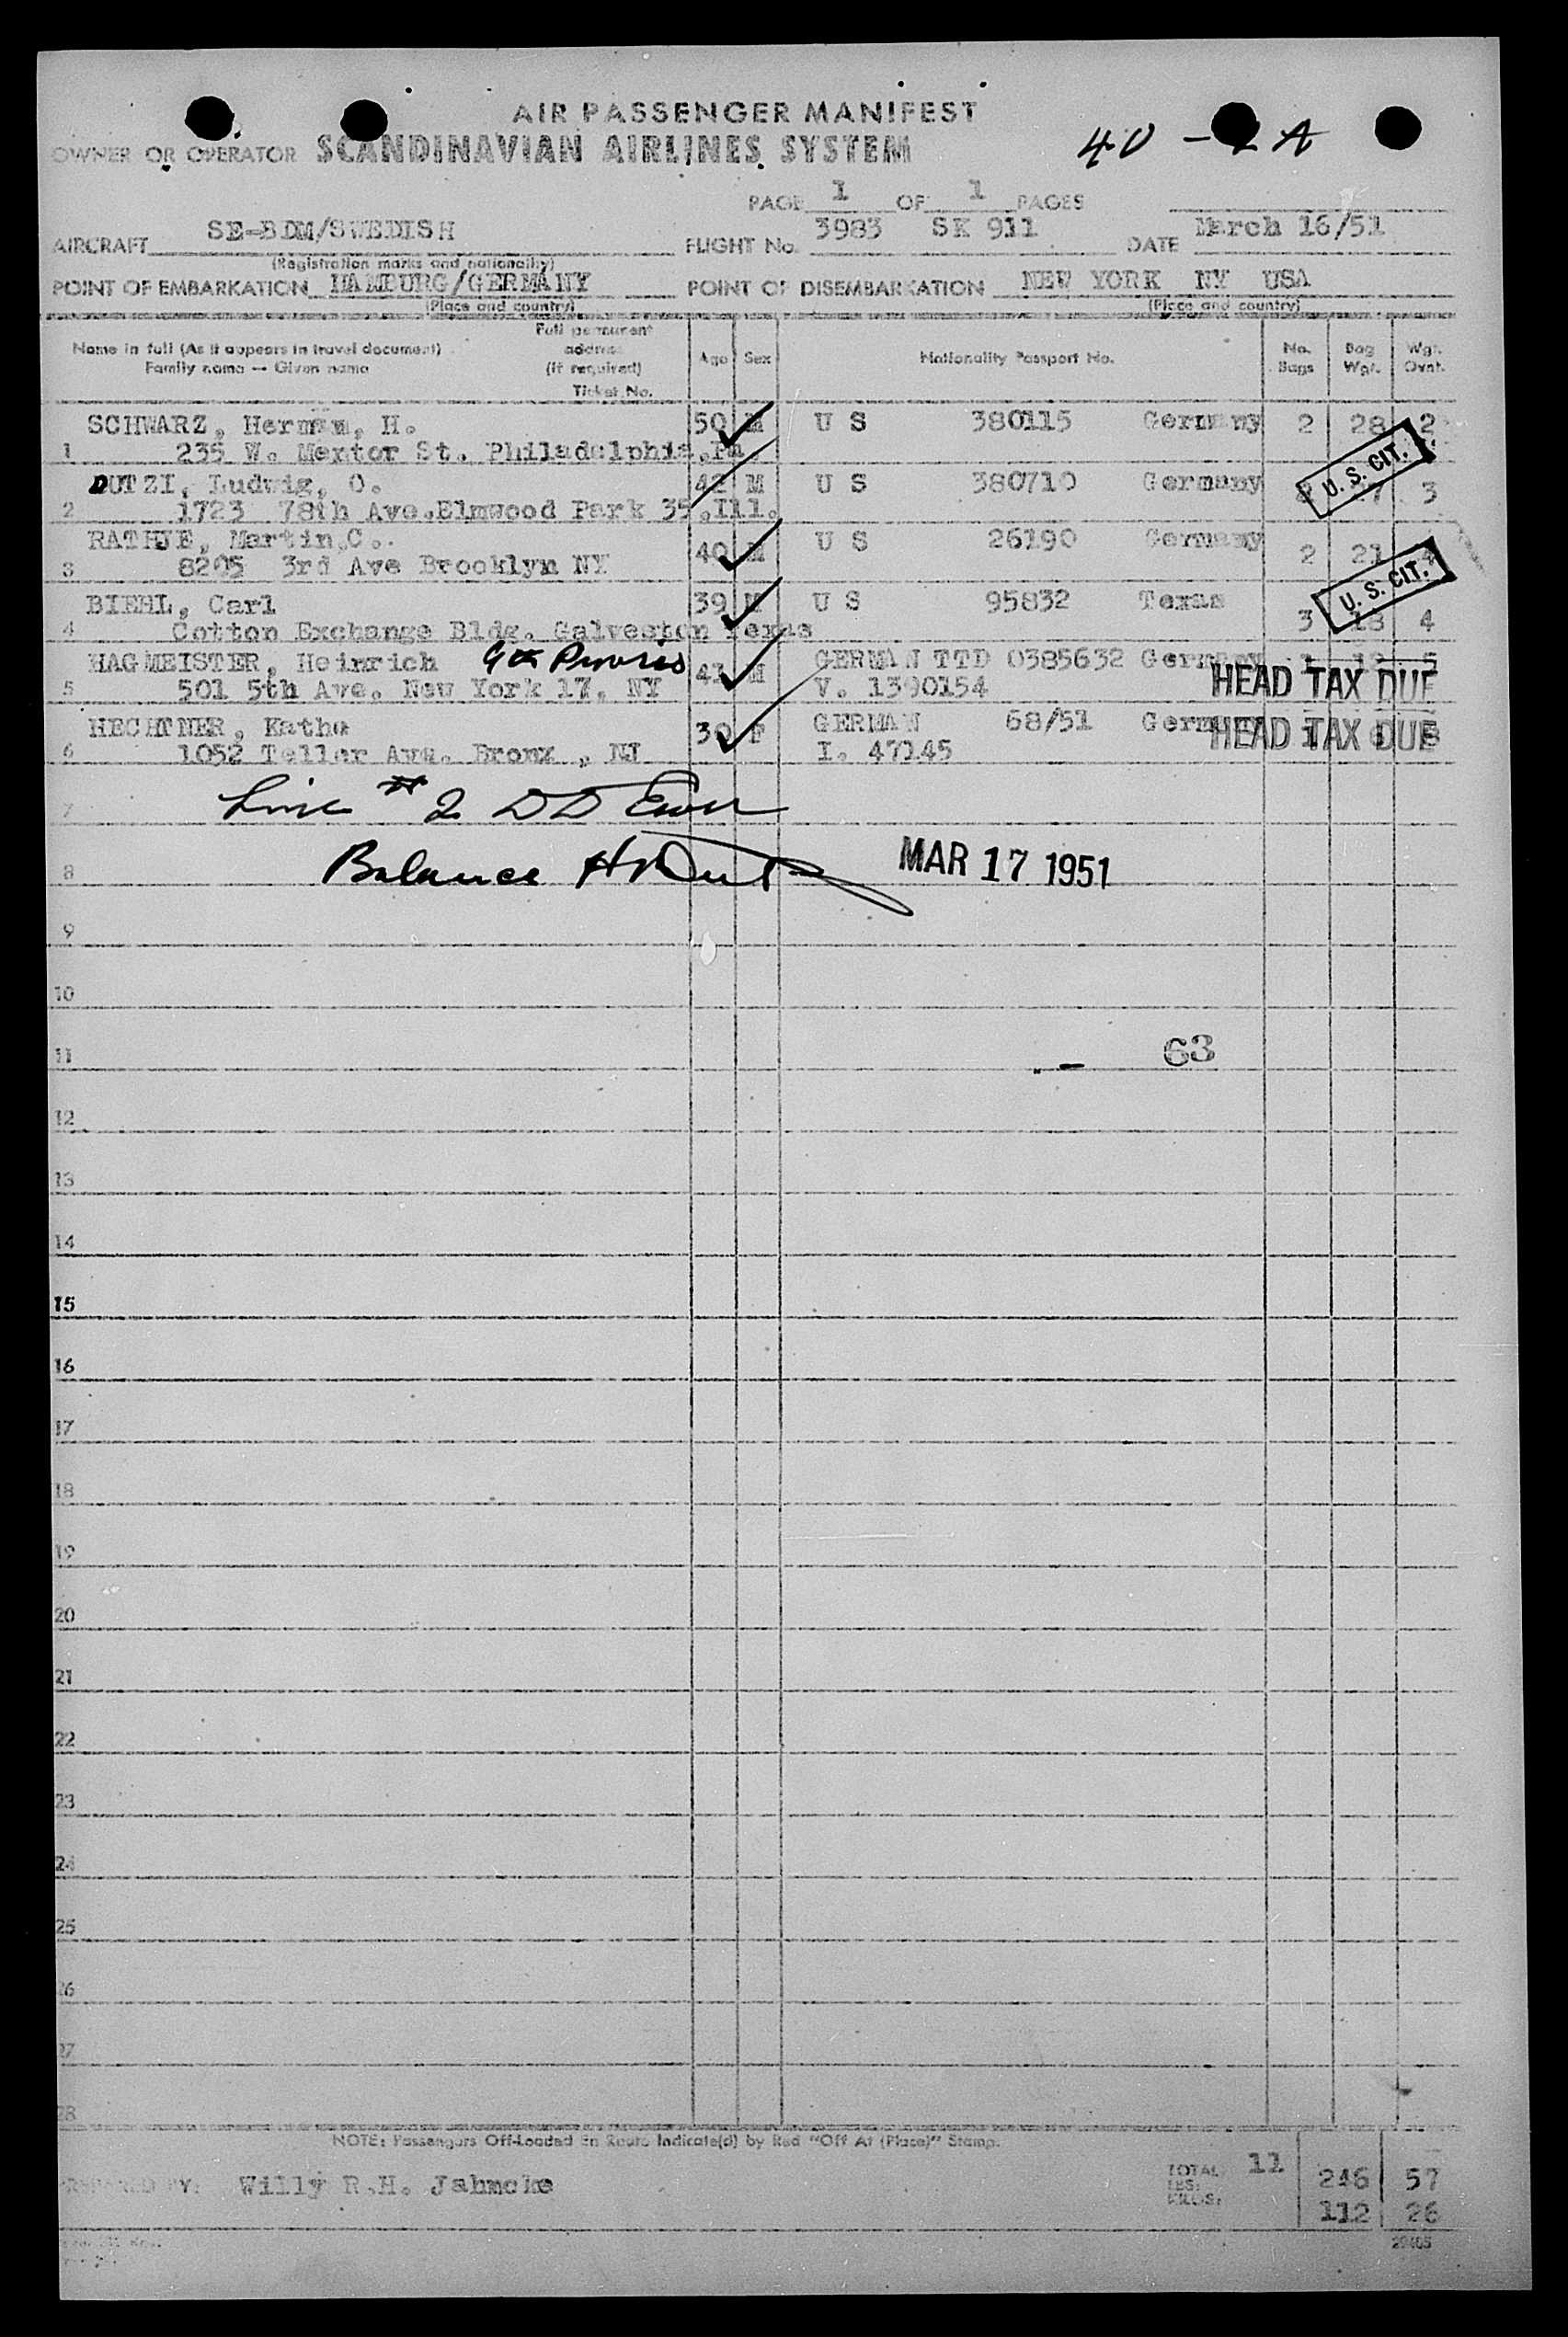 AIR PASSENGER MANIFEST
OWNER OR OPERATOR SCANDINAVIAN AIRLINES SYSTEM
40 - A
PAGE 1 OF 1 PAGES
AIRCRAFT SE-BDM/SWEDISH FLIGHT No. 3983 SK 911 DATE March 16/51
(Registration marks and nationality)
POINT OF EMBARKATION HAMBURG/GERMANY POINT OF DISEMBARKATION NEW YORK NY USA
(Place and country) (Place and country)
Name in full (As it appears in travel document) Family name -- Given name Full permanent address (if required) Ticket No. Age Sex Nationality Passport No. No. Bags Bag Wgt. Wgt. Ovnt.
SCHWARZ, Herman, H. 50 M U S 380115 Germany 2 28 2
1 235 W. Mentor St. Philadelphia,Pa
U. S. CIT.
DUTZI, Ludwig, O. 42 M U S 380710 Germany 3
2 1723 78th Ave.Elmwood Park 35,Ill.
RATHJE, Martin,C.. 40 M U S 26190 Germany 2 21
3 8205 3rd Ave Brooklyn NY
U. S. CIT.
BIEHL, Carl 39 M U S 95832 Texas 3 4
4 Cotton Exchange Bldg. Galveston Texas
HAGMEISTER, Heinrich 41 M GERMAN TTD 0385632 Germany
5 501 5th Ave. New York 17, NY V. 1390154
HEAD TAX DUE
HECHTNER, Kathe 30 F GERMAN 68/51 Germany
HEAD TAX DUE
6 1052 Teller Ave. Bronx , NJ I. 47245
7 Line # 2 DD
8 Balance MAR 17 1951
9
10
11 63
12
13
14
15
16
17
18
19
20
21
22
23
24
25
26
27
28
NOTE: Passengers Off-Loaded En Route Indicate(d) by Red "Off At (Place)" Stamp.
PREPARED BY: Willy R.H. Jahncke TOTAL 11
LBS: 246 57
KILOS: 112 26